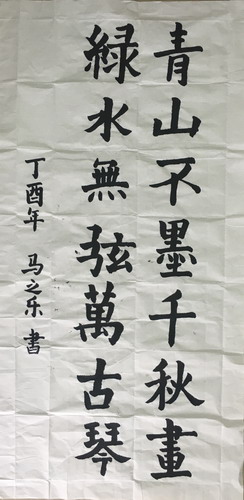 青山不墨千秋畫
緑水無弦萬古琴
丁酉年 马之乐 書